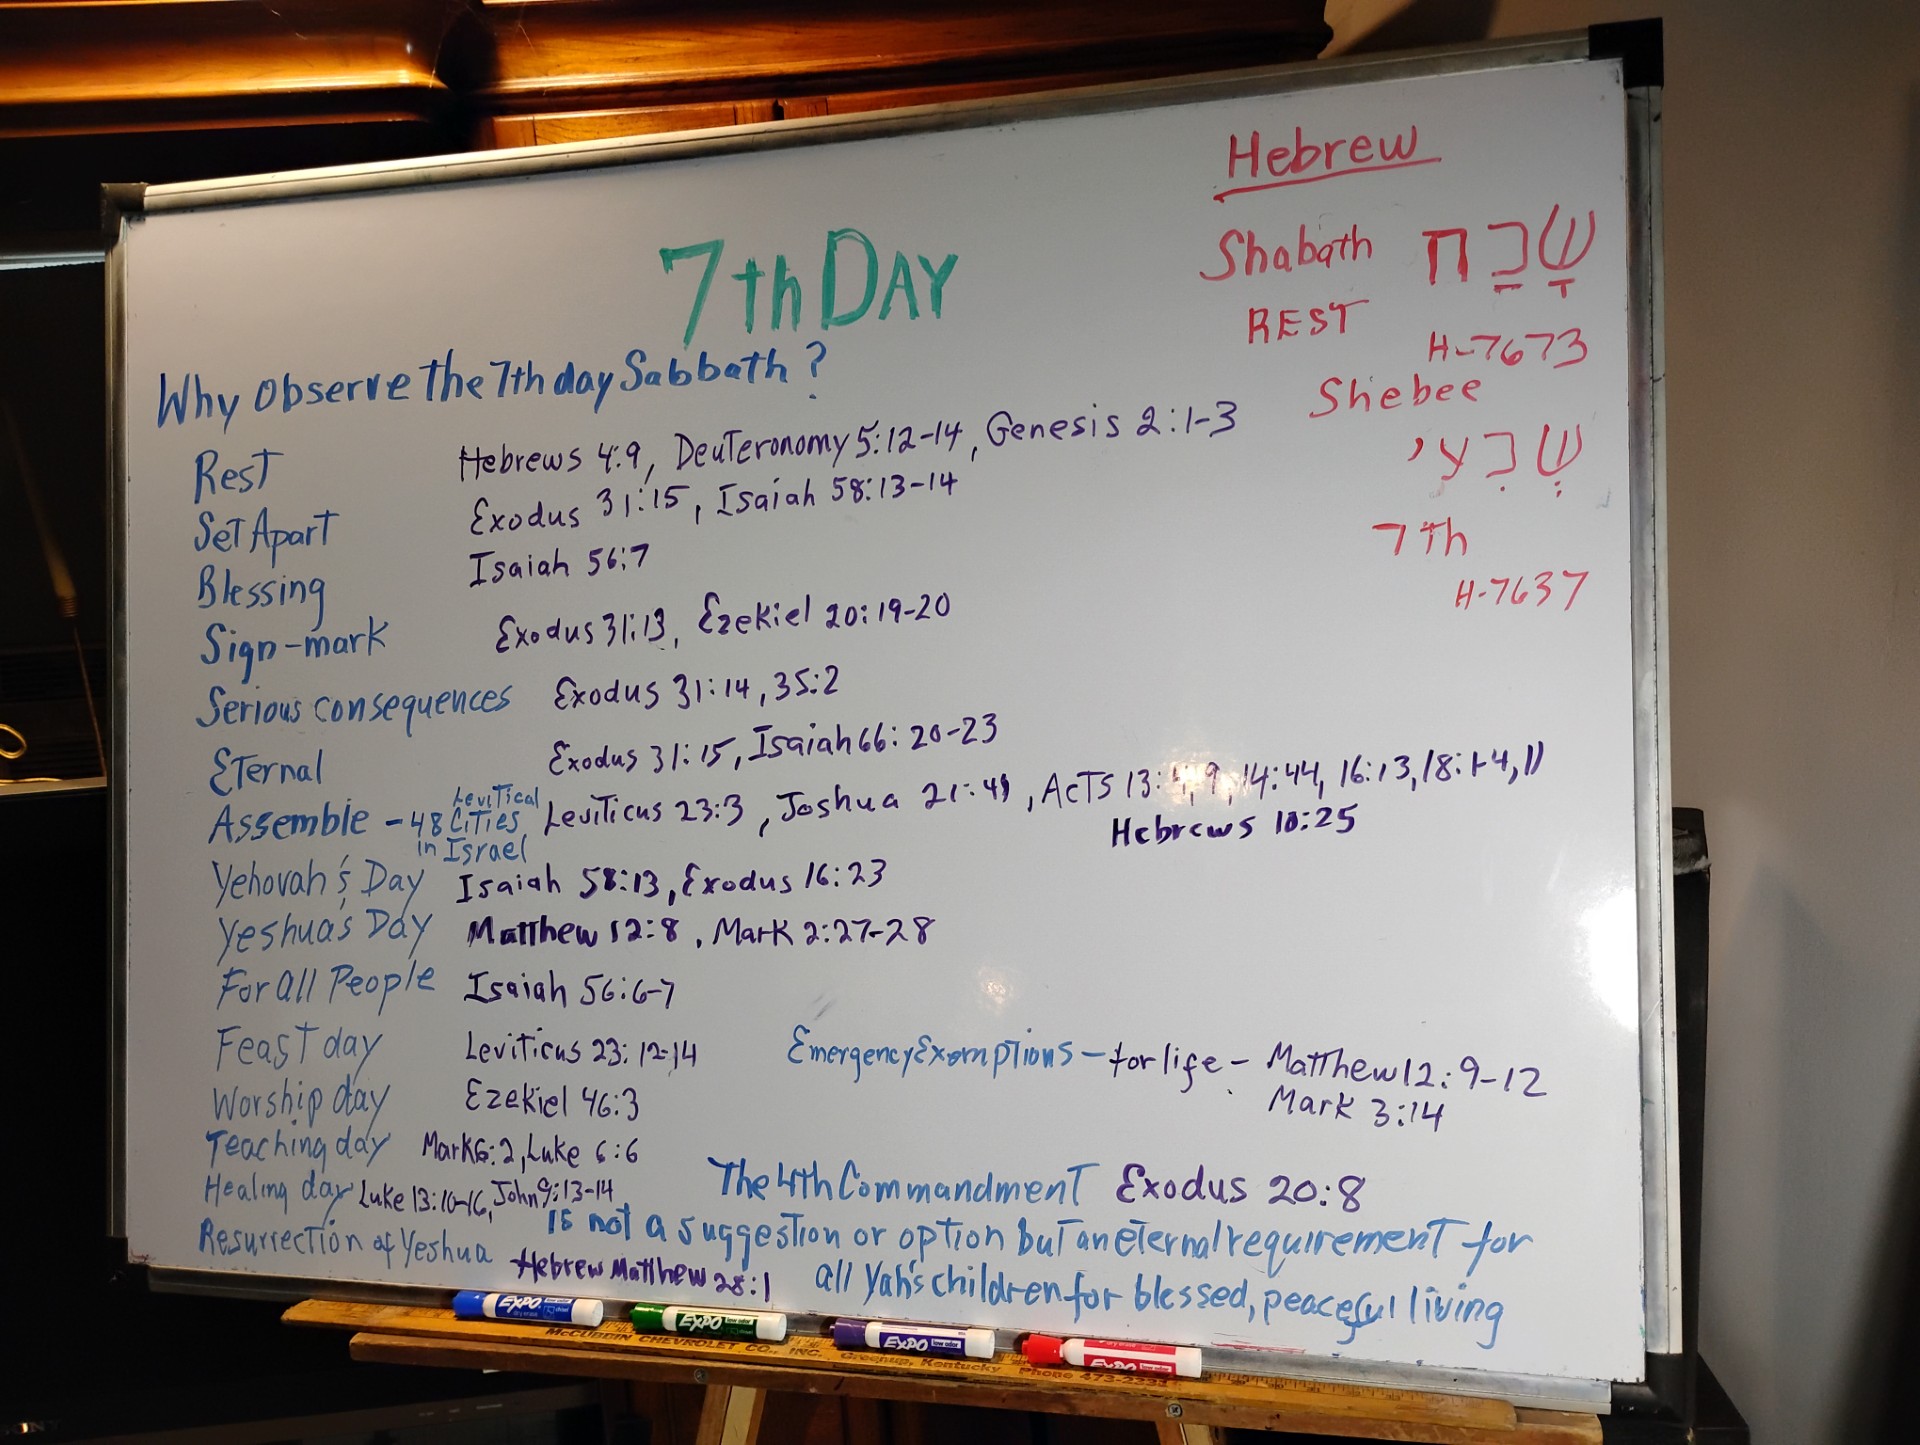 7th DAY
Why observe the 7th day Sabbath?
Rest Hebrews 4:9, Deuteronomy 5:12-14, Genesis 2:1-3
Set Apart Exodus 31:15, Isaiah 58:13-14
Blessing Isaiah 56:7
Sign-mark Exodus 31:13, Ezekiel 20:19-20
Serious consequences Exodus 31:14, 35:2
Eternal Exodus 31:15, Isaiah 66:20-23
Assemble - 48 Levitical Cities in Israel Leviticus 23:3, Joshua 21:41, Acts 13: 14:44, 16:13, 18:1-4, 11
Hebrews 10:25
Yehovah's Day Isaiah 58:13, Exodus 16:23
Yeshua's Day Matthew 12:8, Mark 2:27-28
For all People Isaiah 56:6-7
Feast day Leviticus 23:12-14
Worship day Ezekiel 46:3
Teaching day Mark 6:2, Luke 6:6
Healing day Luke 13:10-16, John 9:13-14
Resurrection of Yeshua Hebrew Matthew 28:1
Emergency Exemptions - for life - Matthew 12:9-12
Mark 3:14
The 4th Commandment Exodus 20:8
is not a suggestion or option but an eternal requirement for
all Yah's children for blessed, peaceful living
Hebrew
Shabath שָׁבַח
REST
H-7673
Shebee
שְׁבִעי
7th
H-7637
EXPO
EXPO
EXPO low odor
EXPO
McCUBBIN CHEVROLET CO., INC. Greenup, Kentucky Phone 473-2331
SONY